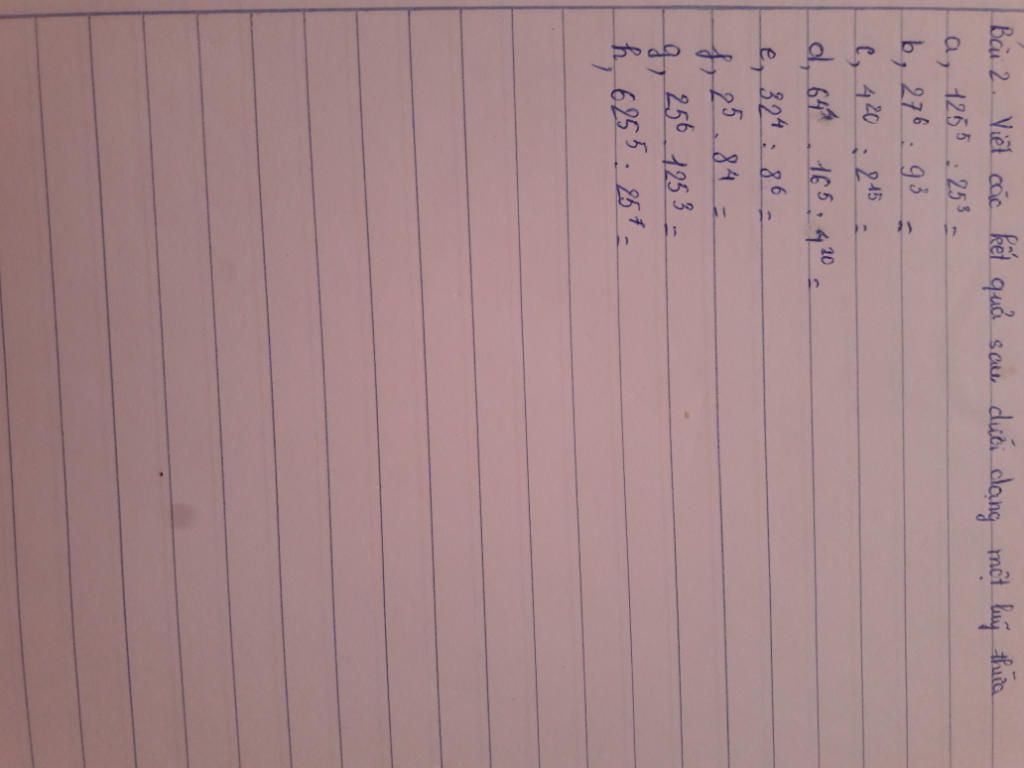 Bài 2. Viết các kết quả sau dưới dạng một luỹ thừa
a, 125⁵ : 25³ =
b, 27⁶ : 9³ =
c, 4²⁰ : 2¹⁵ =
d, 64⁴ . 16⁵ : 4²⁰ =
e, 32⁴ : 8⁶ =
f, 2⁵ . 8⁴ =
g, 25⁶ . 125³ =
h, 625⁵ : 25⁷ =